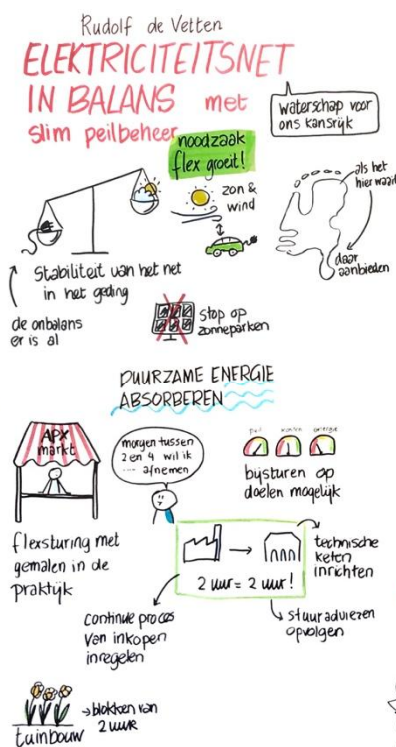 Rudolf de Vetten
ELEKTRICITEITSNET
IN BALANS met
slim peilbeheer
waterschap voor
ons kansrijk
noodzaak
flex groeit!
zon &
wind
als het
hier waait
daar
aanbieden
Stabiliteit van het net
in het geding
de onbalans
er is al
stop op
zonneparken
DUURZAME ENERGIE
ABSORBEREN
APX
markt
morgen tussen
2 en 4 wil ik
---- afnemen
peil kosten energie
bijsturen op
doelen mogelijk
flexsturing met
gemalen in de
praktijk
technische
keten
inrichten
2 uur = 2 uur!
continue proces
van inkopen
inregelen
stuuradviezen
opvolgen
blokken van
2 uur
tuinbouw